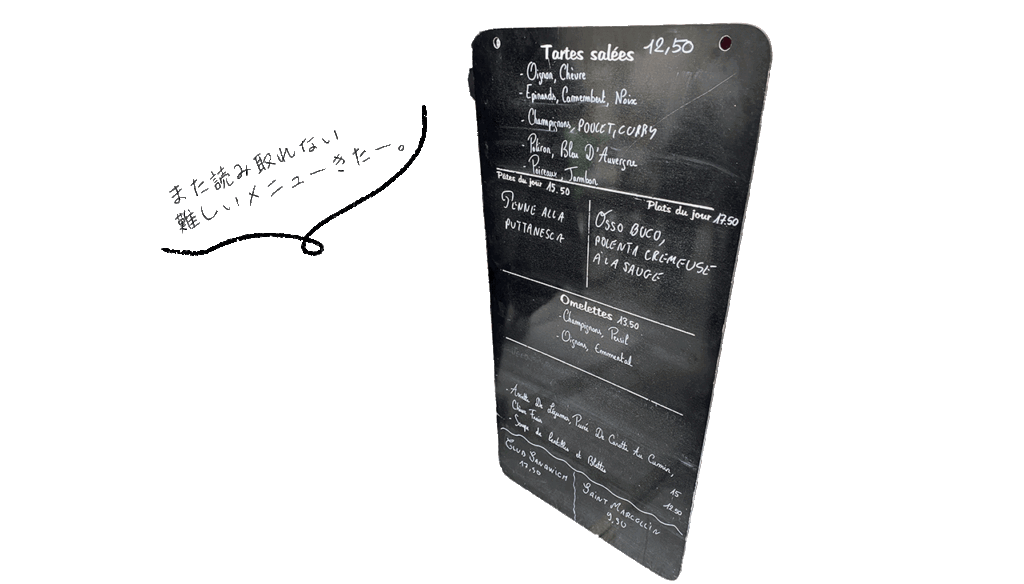 また読み取れない
難しいメニューきたー。
Tartes salées 12,50
- Oignon, Chèvre
- Epinards, Camembert, Noix
- Champignons, POULET, CURRY
- Potiron, Bleu D'Auvergne
- Poireaux, Jambon
Pâtes du jour 15.50
PENNE ALLA
PUTTANESCA
Plats du jour 17.50
OSSO BUCO,
POLENTA CREMEUSE
À LA SAUGE
Omelettes 13.50
- Champignons, Persil
- Oignons, Emmental
- Assiette De Légumes, Purée De Carotte Au Cumin,
Chèvre Frais 15
- Soupe de Lentilles et Blettes 12.50
CLUB SANDWICH
17,50
SAINT MARCELLIN
9,90